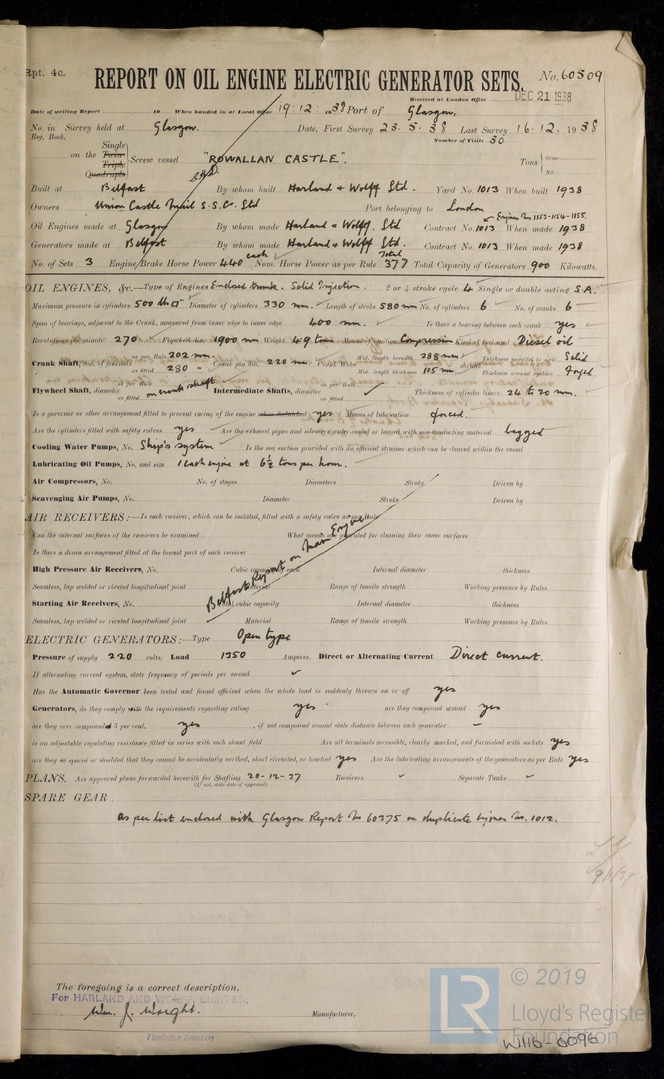 Rpt. 4c.
REPORT ON OIL ENGINE ELECTRIC GENERATOR SETS.
No. 60509
Received at London Office DEC 21 1938
Date of writing Report 19 When handed in at Local Office 19·12·1938 Port of Glasgow.
No. in Reg. Book. Survey held at Glasgow. Date, First Survey 23.5.38 Last Survey 16.12.1938
Number of Visits 30
on the Single Twin Triple Quadruple Screw vessel "ROWALLAN CASTLE". Tons Gross Net
Built at Belfast By whom built Harland & Wolff Ltd. Yard No. 1013 When built 1938
Owners Union Castle Mail S.S. Co. Ltd Port belonging to London
Engine Nos 1153-1154-1155.
Oil Engines made at Glasgow By whom made Harland & Wolff. Ltd Contract No. 1013 When made 1938
Generators made at Belfast By whom made Harland & Wolff Ltd. Contract No. 1013 When made 1938
No. of Sets 3 Engine Brake Horse Power 440 each Nom. Horse Power as per Rule 377 Total Total Capacity of Generators 900 Kilowatts.
OIL ENGINES, &c.—Type of Engines Enclosed Trunk. Solid Injection. 2 or 4 stroke cycle 4 Single or double acting S.A.
Maximum pressure in cylinders 500 lbs □" Diameter of cylinders 330 mm. Length of stroke 580 mm No. of cylinders 6 No. of cranks 6
Span of bearings, adjacent to the Crank, measured from inner edge to inner edge 400 mm. Is there a bearing between each crank yes
Revolutions per minute 270 Flywheel dia. 1900 mm Weight 4.9 tons Means of ignition Compression Kind of fuel used Diesel oil
Crank Shaft, dia. of journals as per Rule 202 mm. as fitted 230 " Crank pin dia. 220 mm. Crank Webs Mid. length breadth 288 mm Mid. length thickness 115 mm Thickness parallel to axis Solid Thickness around eyehole forged
Flywheel Shaft, diameter as per Rule as fitted on crank shaft Intermediate Shafts, diameter as per Rule as fitted Thickness of cylinder liners 24 to 20 mm.
Is a governor or other arrangement fitted to prevent racing of the engine yes Means of lubrication forced
Are the cylinders fitted with safety valves yes Are the exhaust pipes and silencers water cooled or lagged with non-conducting material lagged
Cooling Water Pumps, No. Ship's system Is the sea suction provided with an efficient strainer which can be cleared within the vessel
Lubricating Oil Pumps, No. and size 1 each engine at 6½ tons per hour.
Air Compressors, No. No. of stages Diameters Stroke Driven by
Scavenging Air Pumps, No. Diameter Stroke Driven by
AIR RECEIVERS:—Is each receiver, which can be isolated, fitted with a safety valve as per Rule
Can the internal surfaces of the receivers be examined What means are provided for cleaning their inner surfaces
Is there a drain arrangement fitted at the lowest part of each receiver
Belfast Report on Main Engines
High Pressure Air Receivers, No. Cubic capacity of each Internal diameter thickness
Seamless, lap welded or riveted longitudinal joint Material Range of tensile strength Working pressure by Rules
Starting Air Receivers, No. Total cubic capacity Internal diameter thickness
Seamless, lap welded or riveted longitudinal joint Material Range of tensile strength Working pressure by Rules
ELECTRIC GENERATORS:—Type Open type
Pressure of supply 220 volts. Load 1350 Amperes. Direct or Alternating Current Direct current.
If alternating current system, state frequency of periods per second
Has the Automatic Governor been tested and found efficient when the whole load is suddenly thrown on or off yes
Generators, do they comply with the requirements regarding rating yes are they compound wound yes
are they over compounded 5 per cent. yes , if not compound wound state distance between each generator
is an adjustable regulating resistance fitted in series with each shunt field Are all terminals accessible, clearly marked, and furnished with sockets yes
are they so spaced or shielded that they cannot be accidentally earthed, short circuited, or touched yes Are the lubricating arrangements of the generators as per Rule yes
PLANS. Are approved plans forwarded herewith for Shafting 20-12-37 Receivers Separate Tanks
(If not, state date of approval)
SPARE GEAR.
As per list enclosed with Glasgow Report No 60375 on duplicate engines No. 1012.
The foregoing is a correct description,
For HARLAND AND WOLFF, LIMITED.
Wm. J. Waight.
Manufacturer.
© 2019
LR
Lloyd's Register
Foundation
W1116-0096